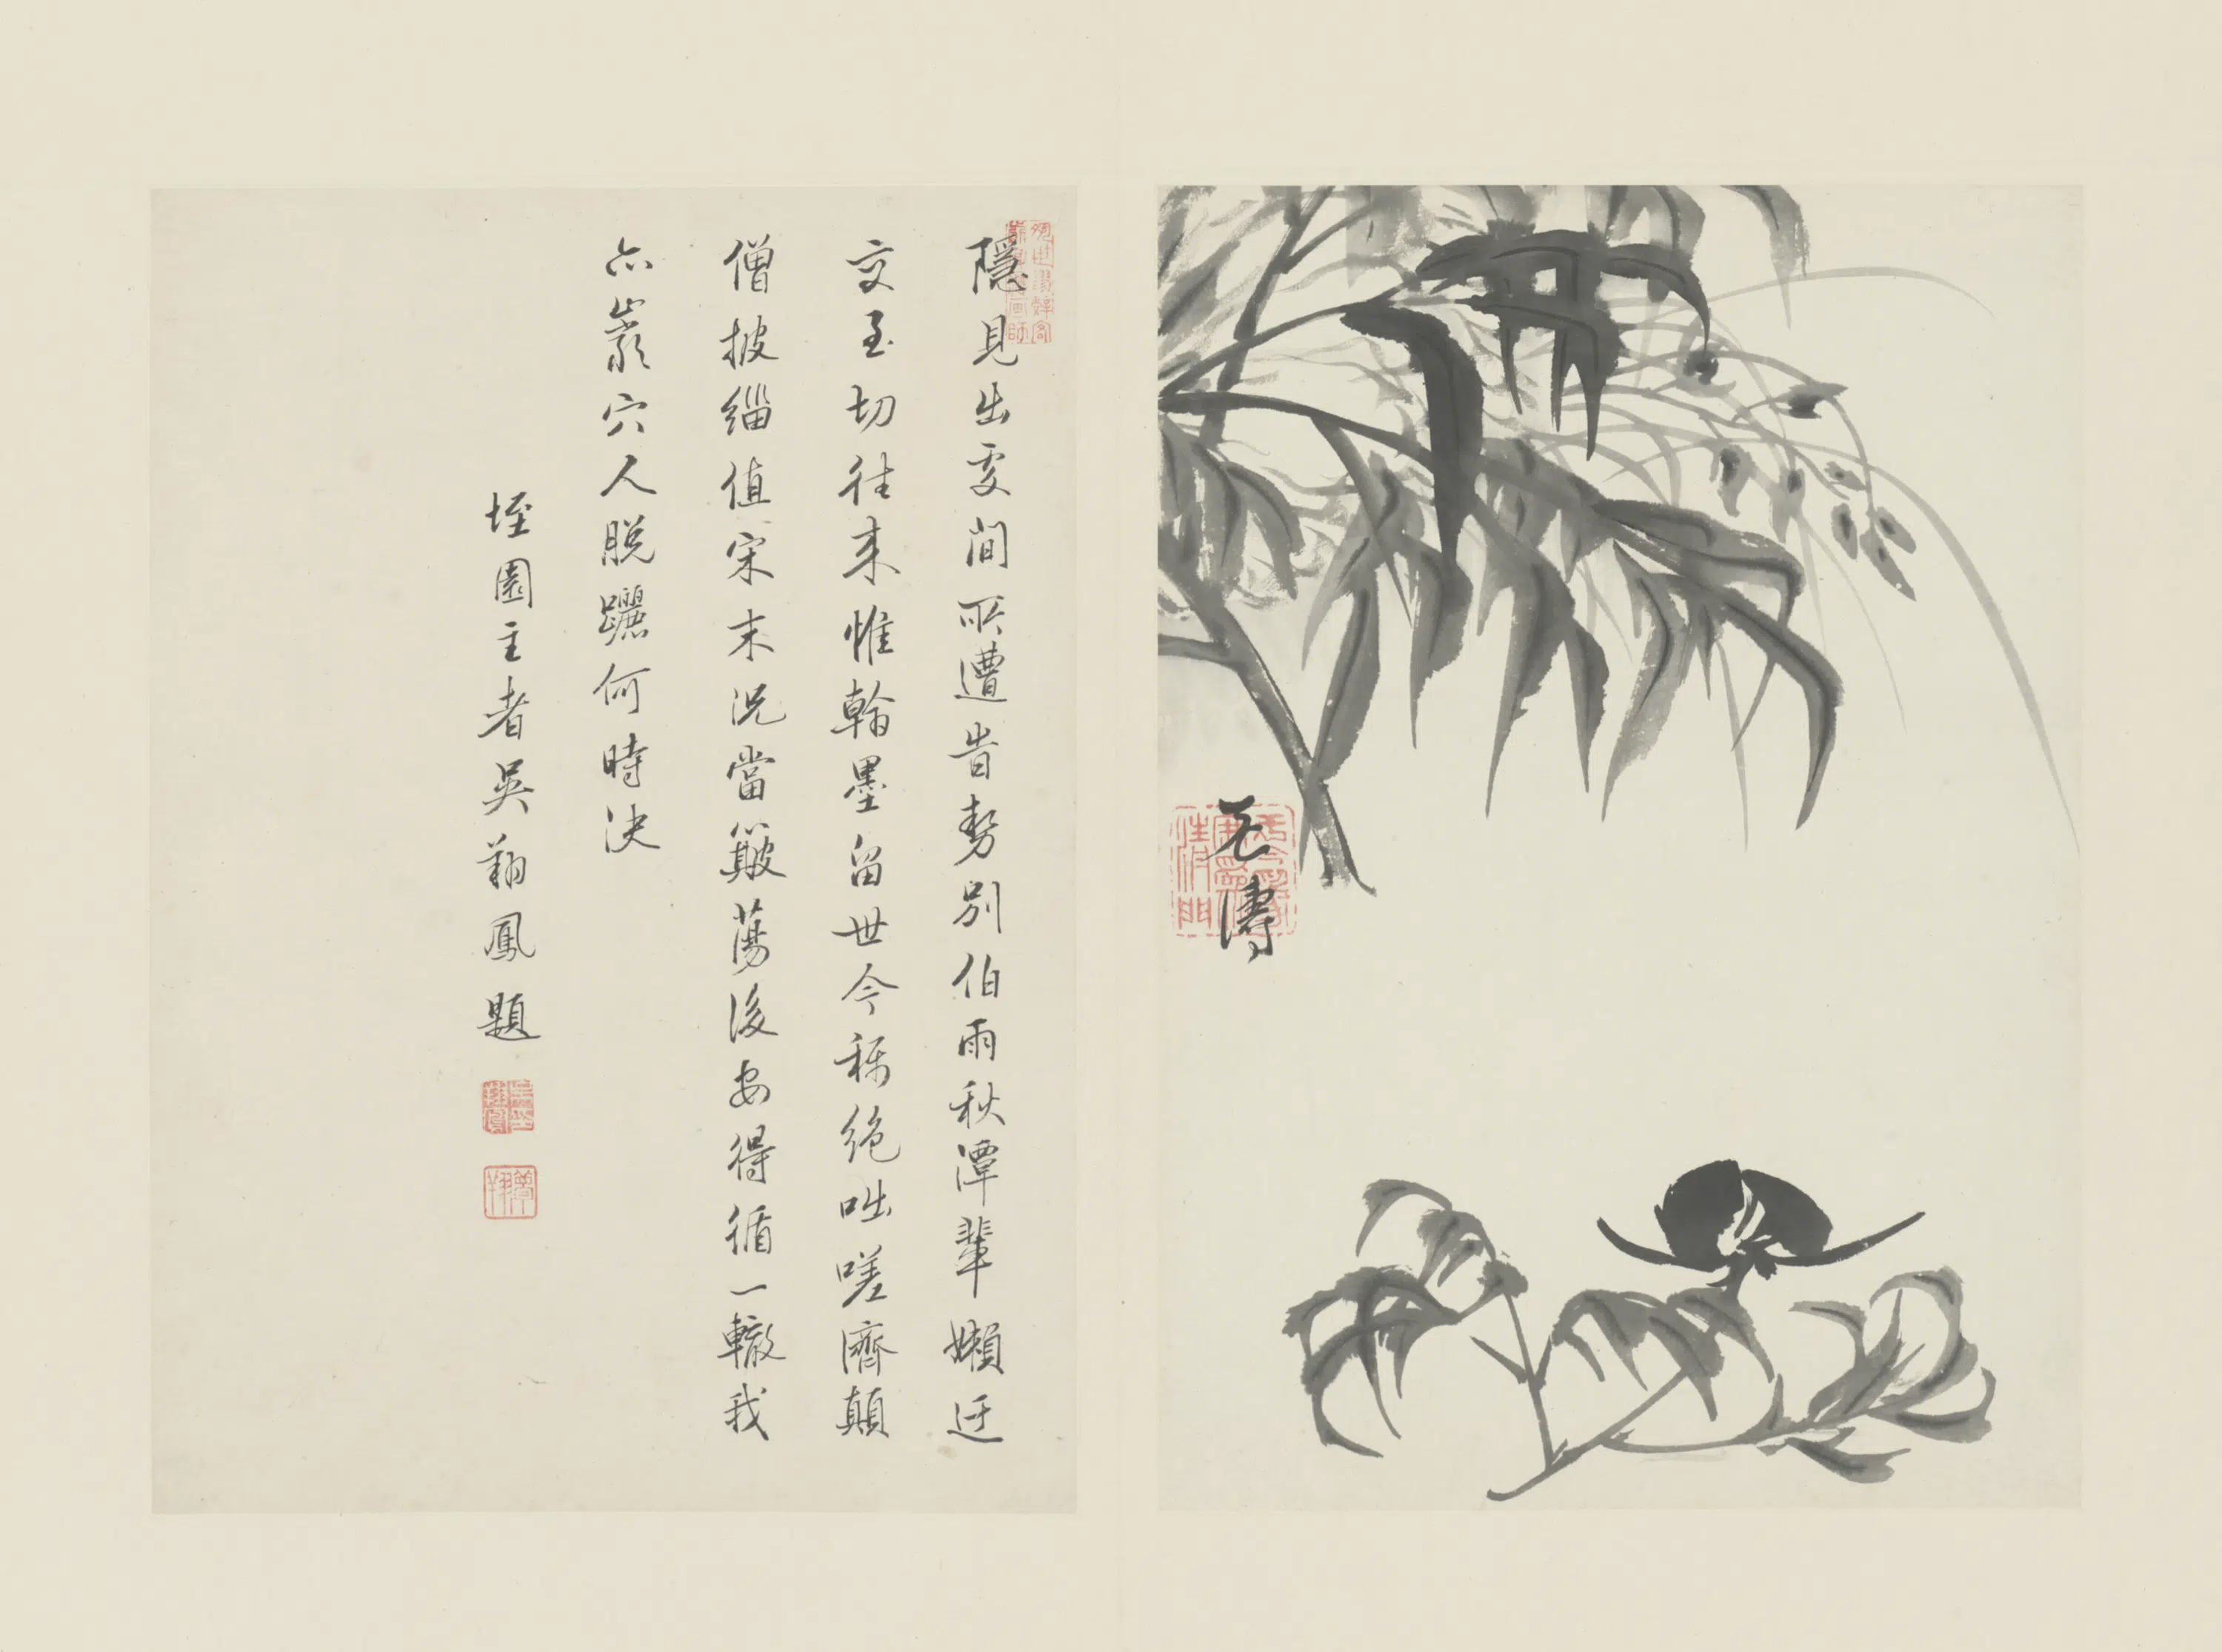 老濤
隱見出處間所遭昔勢別伯雨秋潭輩嬾迂
交至切往來惟翰墨留世今稱絕咄嗟濟顛
僧披緇值宋末況當簸蕩後安得循一轍我
亦巖穴人脫躧何時決
垤園主者吳翔鳳題